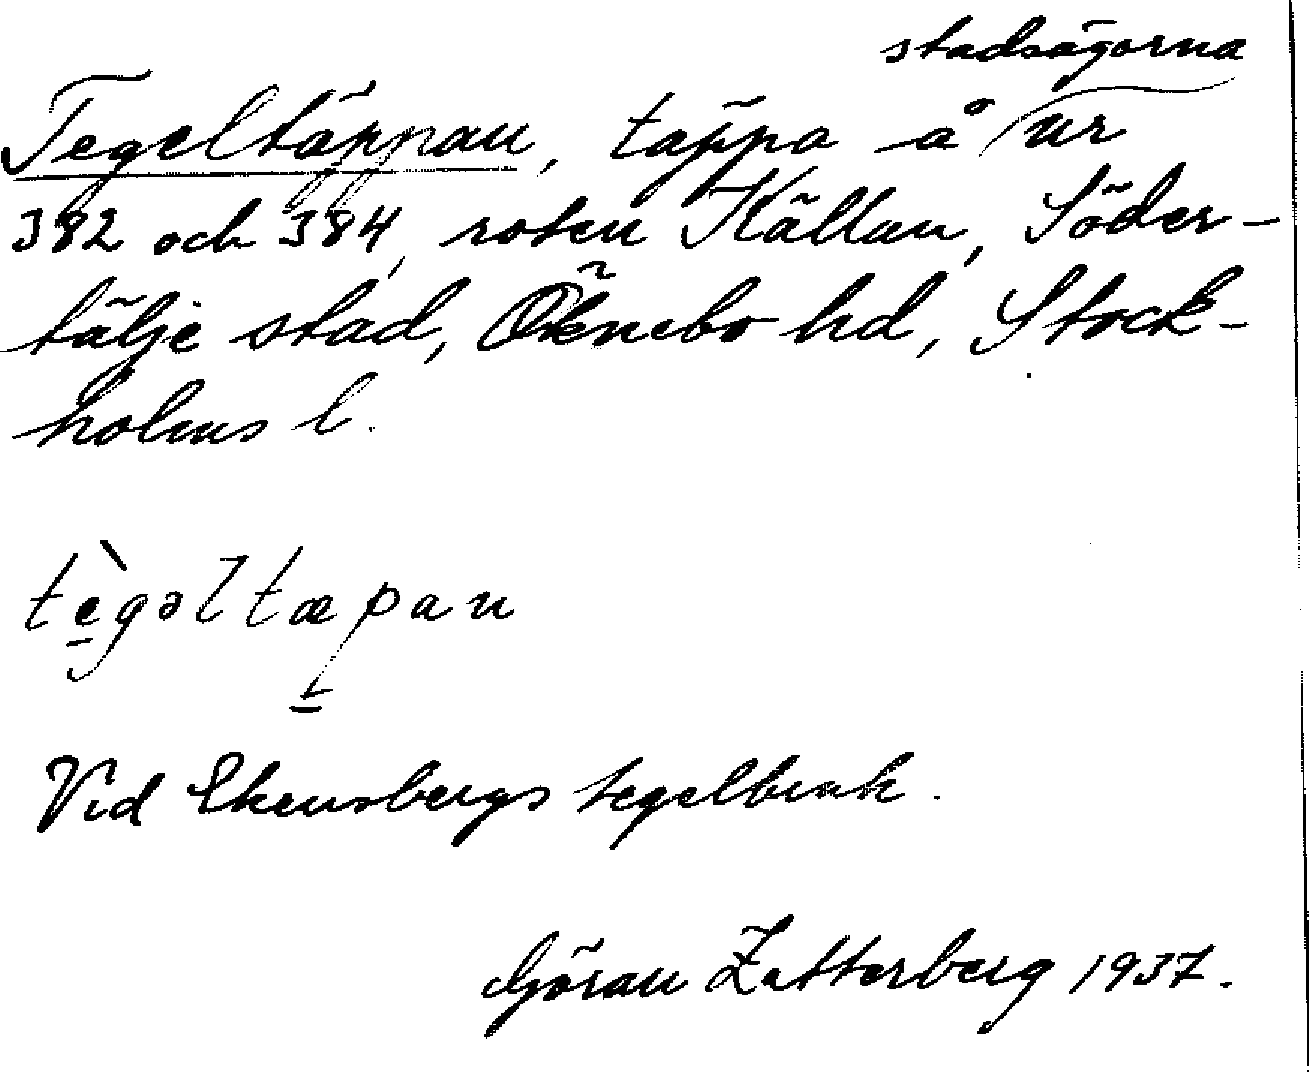 stadsägorna
Tegeltäppan, täppa å nr
382 och 384, roten Källan, Söder-
tälje stad, Öknebo hd, Stock-
holms l.
tègəltæpan
Vid Ekensbergs tegelbruk.
Göran Zetterberg 1937.